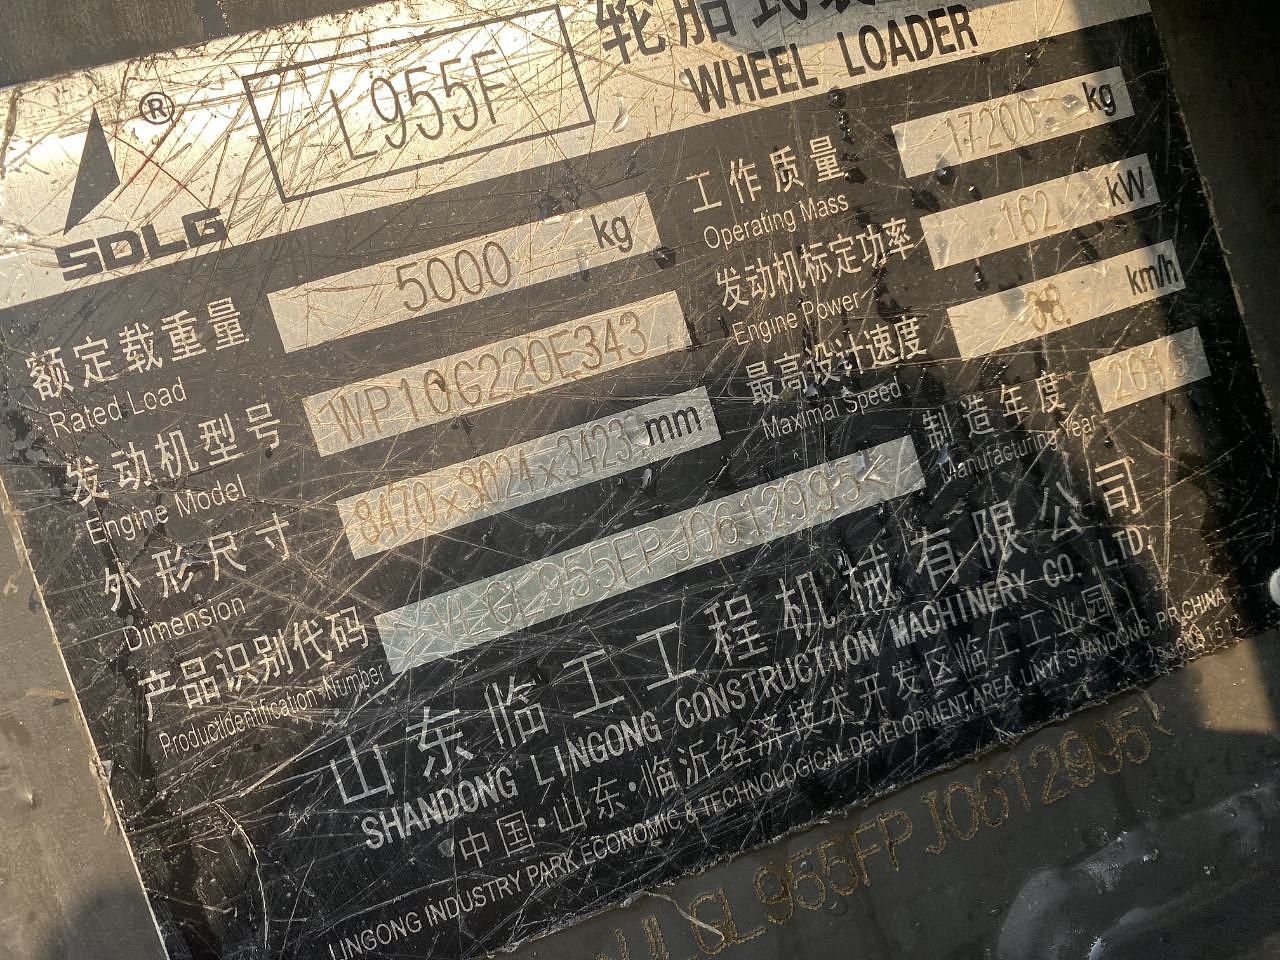 轮胎式装
WHEEL LOADER
L955F
®
SDLG
额定载重量 5000 kg
Rated Load
工作质量 17200 kg
Operating Mass
发动机型号 WP10G220E343
Engine Model
发动机标定功率 162 kW
Engine Power
外形尺寸 8470×3024×3423 mm
Dimension
最高设计速度 38. km/h
Maximal Speed
产品识别代码 VLGL955FPJ0612995<
Product Identification Number
制造年度 2019
Manufacturing Year
山东临工工程机械有限公司
SHANDONG LINGONG CONSTRUCTION MACHINERY CO. LTD.
中国·山东·临沂经济技术开发区临工工业园
LINGONG INDUSTRY PARK ECONOMIC & TECHNOLOGICAL DEVELOPMENT AREA, LINYI SHANDONG, P.R.CHINA.
VLGL955FPJ0612995